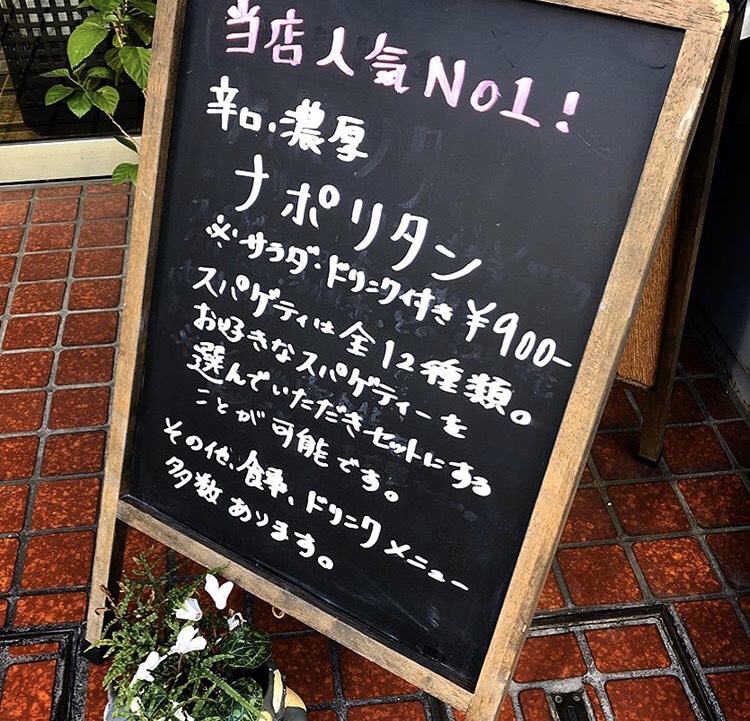 当店人気No1!
辛口、濃厚
ナポリタン
※サラダ・ドリンク付き ¥900-
スパゲティは全12種類。
お好きなスパゲティーを
選んでいただきセットにする
ことが可能です。
その他、食事、ドリンクメニュー
多数あります。